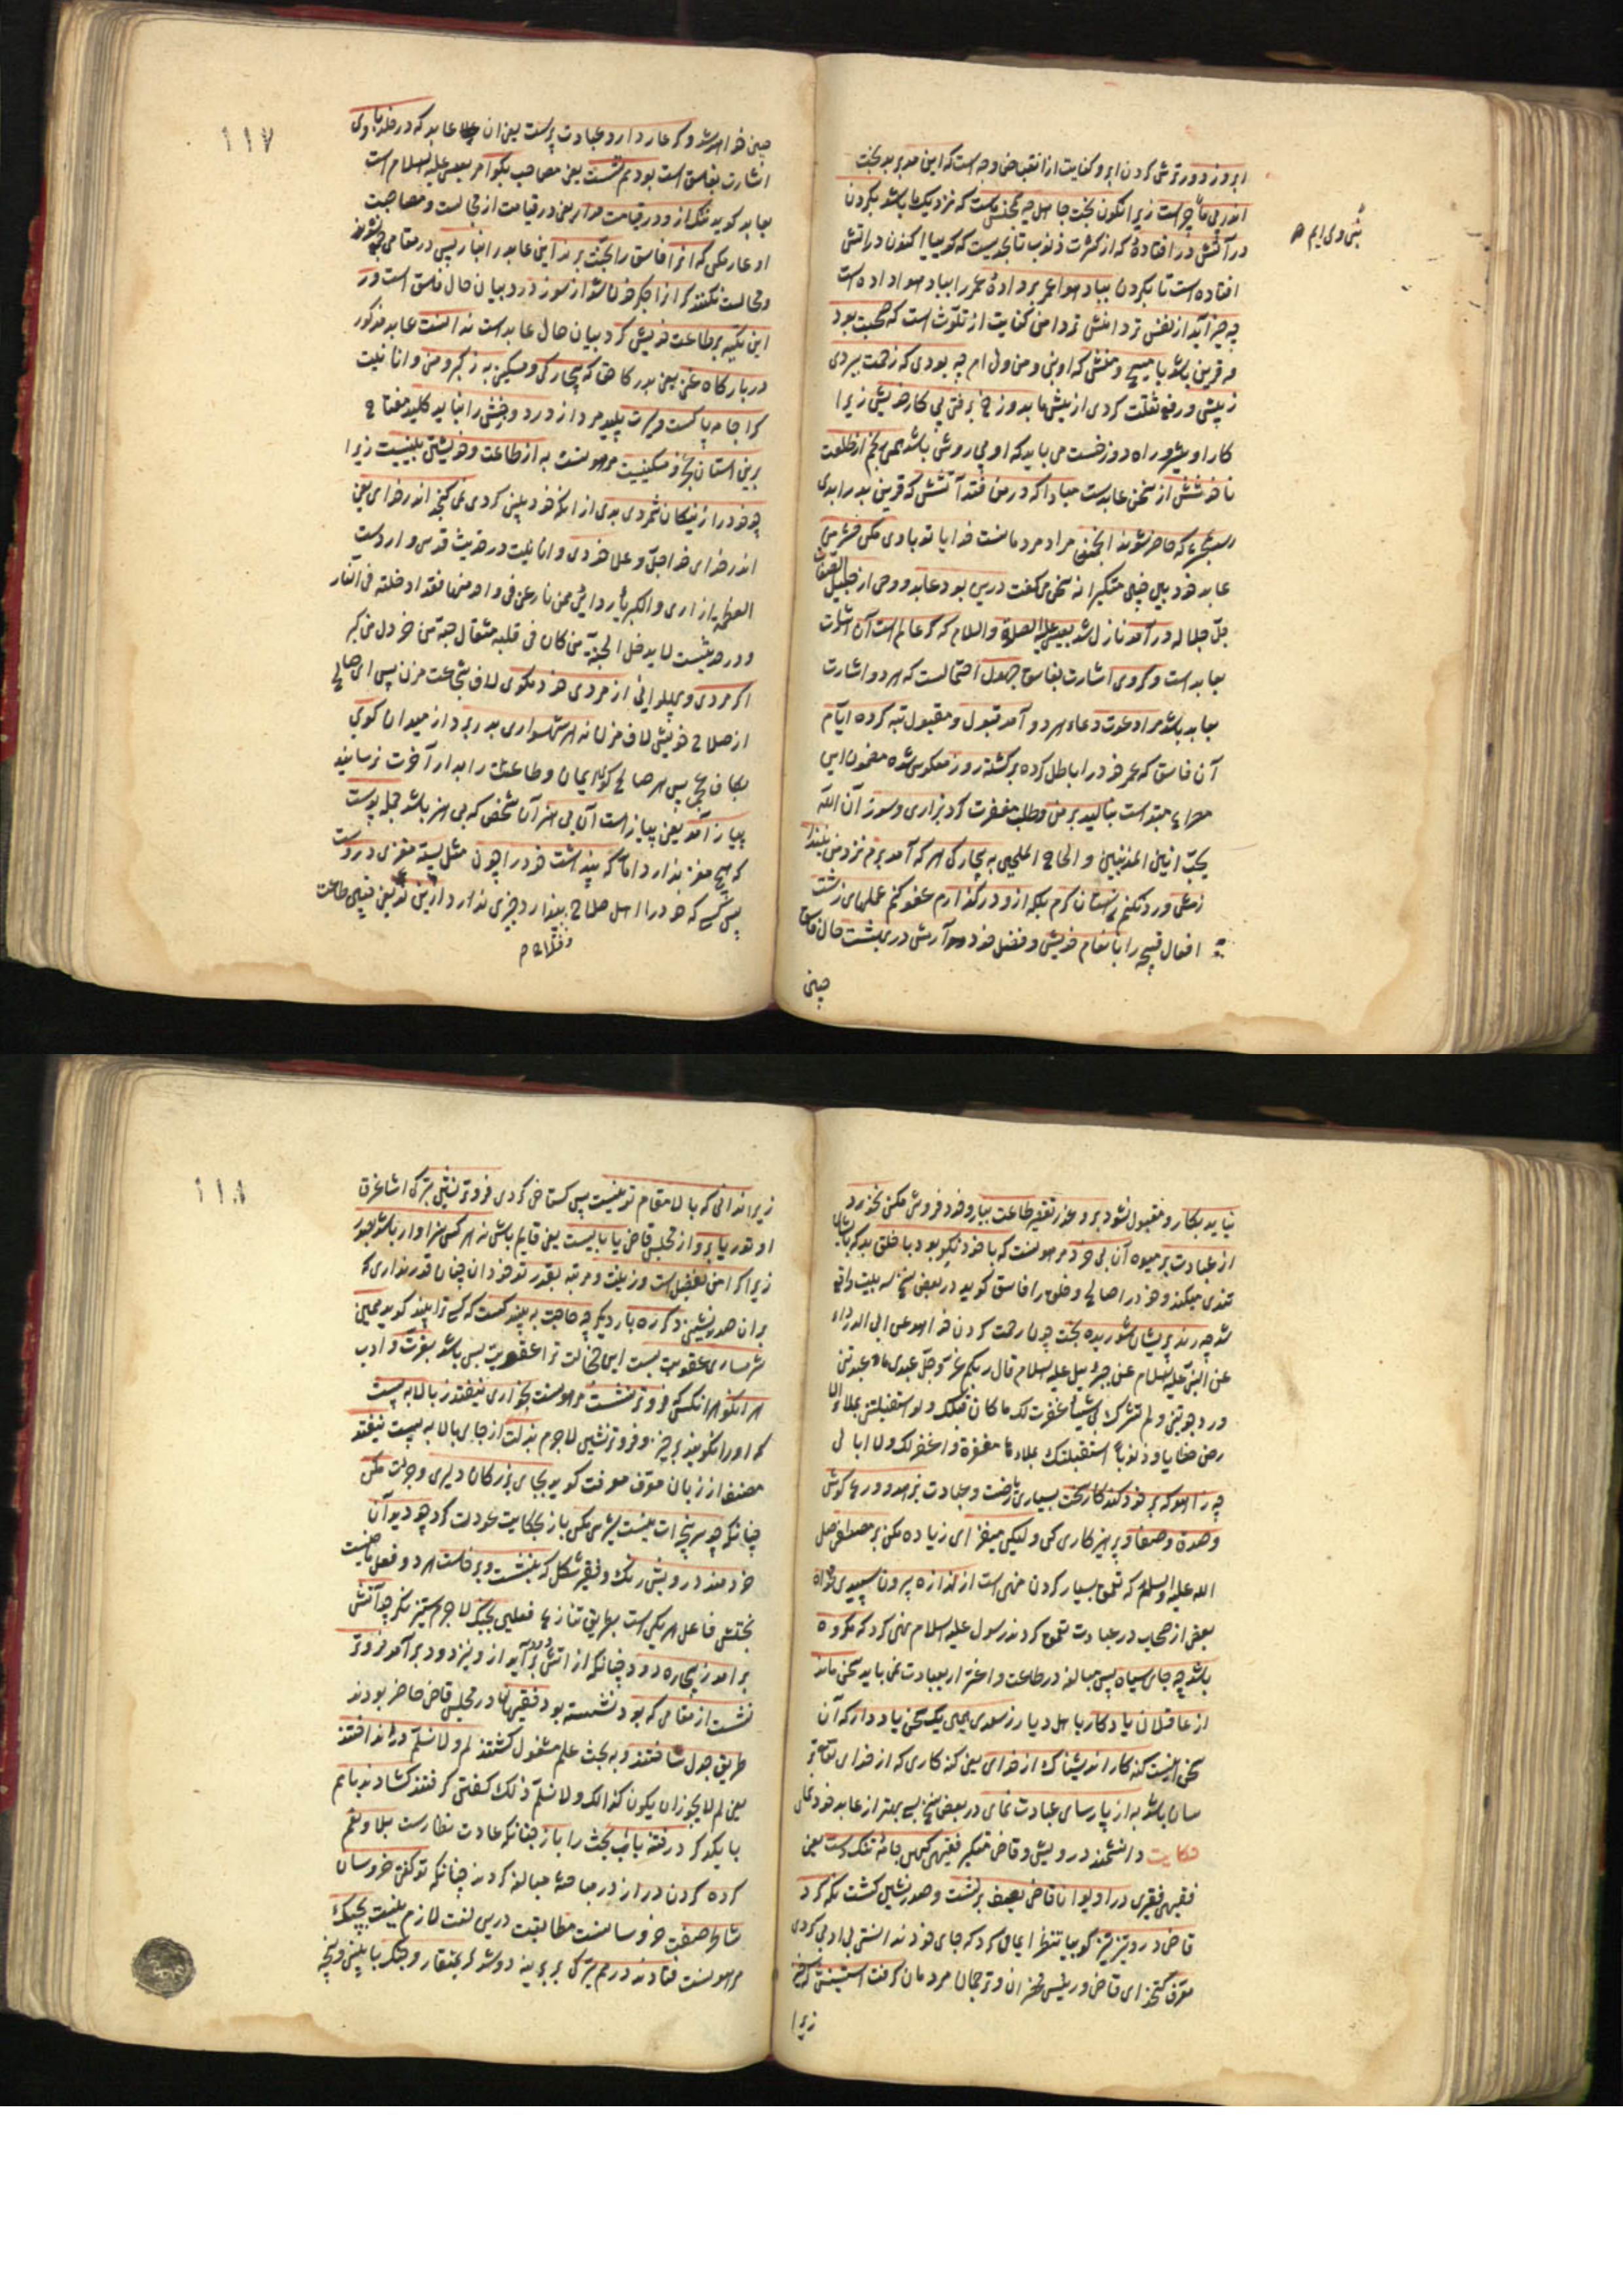 ابروز دور ترش کردن ابرو کنایت از انقباض وجه است که این مدبر بدبخت
اندر پی ما چراست زیرا نکون بخت جاهل چه همجنس ماست که نزدیک ما باشد بکردن
در آتش در افتادهٔ که از کثرت ذنوب تا بحدیست که کوییا اکنون در آتش
افتاده است تا بکردن بباد هوا عمر بر دادهٔ عمر را بباد هوا داده است
چه خیر آید از نفس تر دامنش تر دامن کنایت از تلوث است که صحبت بود
که قرین باشد با مسیح و منش که او بنی و من ولی ام چه بودی که زحمت ببردی
ز پیش و رفع ثقلت کردی از پیش ما بدوزخ برفتی پی کار خویش زیرا
کار او راه دوزخست می باید که او پی روش باشد همی رنجم از طلعت
نا خوشش از سخن عابدست مبادا که در من فتد آتشش که قرین بد را بدی
بمحشر که حاضر شوند انجمن مراد مردمانست خدایا تو با وی مکن حشر من
عابد خود بین چنین متکبرانه سخن می کفت درین بود عابد و وحی از جلیل الصفات
جل جلاله در آمد نازل شد بعیسی علیه الصلوة والسلام که کر عالم است آن اشارت
بعابد است و کر وی اشارت بفاسق جهول احتمالست که هر دو اشارت
بعابد باشد مرا دعوت دعاء هر دو آمد قبول و مقبول تبه کرده ایام
آن فاسق که عمر خود را باطل کرده برکشته روز معکوس شده مضمون این
مصراع مبتداست بنالید بر من و طلب مغفرت کرد بزاری و سوز ان الله
یحب انین المذنبین و الحاح الملحین به بیچارکی هر که آمد برم نزد من
نیندازمش ز آستان کرم بلکه ازو در کذارم عفو کنم عملهای زشت
افعال قبیحه را بانعام خویش و فضل خود در آرمش در بهشت حال فاسق
چنین
۱۱۷
چنین خواهد شد و کر عار دارد عبادت پرست یعنی آن عابد که در خلد با وی
اشارت بفاسق است بود هم نشست یعنی مصاحب بکو امر بعیسی علیه السلام است
بعابد کوید ننک ازو در قیامت مدار یعنی در قیامت از مجالست و مصاحبت
او عار مکن که آنرا فاسق را بجنت برند این عابد را بنار پس در مقامی
و مجالست نکنند کرانرا جکر خون شد از سوز درد بیان حال فاسق است ور
این تکیه بر طاعت خویش کرد بیان حال عابد است ندانست عابد مذکور
در بارکاه غنی یعنی بدرکاه حق که بیچارکی و مسکینی به ز کبر و منی و انانیت
کرا جامه پاکست و سیرت پلید مر در دوزخش را نباید کلید مفتاح
برین استان عجز و مسکینیت مرهونست به از طاعت و خویشتن بینیت زیرا
چو خود را ز نیکان شمردی بدی از انکه خود بین کردی نمی کنجد اندر خدایی خودی
اندر خدای خدا جل و علا خودی و انانیت در حدیث قدسی وارد است
العظمة ازاری والکبریاء ردائی فمن نازعنی فی واحد منهما فقد ادخلته فی النار
و در حدیثست لا یدخل الجنة من کان فی قلبه مثقال حبة من خردل من کبر
اکر مردی و پهلوانی از مردی خود مکوی لاف شجاعت مزن پس ای صالح
از صلاح خویش لاف مزن نه هر شهسواری بدر برد از میدان کوی
بکاف عجمی پس هر صالح کوی ایمان و طاعتش را بدار آخرت نرسانید
پیاز آمد یعنی پیازست آن بی هنر آن شخص که بی هنر باشد جمله پوست
که هیچ مغز ندارد اما که پنداشت خود را چون مثل پسته مغزی در و هست
پس کسی که خود را اهل صلاح پندارد چیزی ندارد ازین نوع یعنی چنین طاعت
بنی ولی ایم
نیاید بکار و مقبول نشود برو عذر تقصیر طاعت بیار و خود فروش مکن نخورد
از عبادت بر میوه آن بی خرد مرهونست که با خود نیکو بود با خلق بد که با ایشان
تعدی میکند و خود را صالح و خلق را فاسق کوید در بعض نسخ سه بیت واقع
شد چه رند پریشان شوریده بخت چون رحمت کردن خواهد عن ابی الدرداء
عن النبی علیه السلام عن جبرئیل علیه السلام قال ربکم عز وجل عبدی ما عبدتنی
ورجوتنی ولم تشرک بی شیئا غفرت لک ما کان فیک ولو استقبلتنی بملاء
الارض خطایا وذنوبا استقبلتک بملاءها مغفرة واغفر لک ولا ابالی
چه زاهد که بر خود کند کار سخت بسیاری ریاضت و عبادت بزهد و ورع کوش
و صدق و صفا و پرهیزکاری کن ولیکن میفزای زیاده مکن بر مصطفی صلی
الله علیه وسلم که تعمق بسیار کردن منهی است از اندازه بیرون سپیدی مخواه
بعض از صحابه در عبادت تعمق کردند رسول علیه السلام نهی کرد که مکروه
باشد چه جای سیاه پس مبالغه در طاعت و اغترار بعبادت نمی باید سخن ماند
از عاقلان یادکار با اهل دیار ز سعدی همین یک سخن یاد دار که آن
سخن اینست کنه کار اندیشناک از خدای یعنی کنه کاری که از خدای تعالی
ترسان باشد به از پارسای عبادت نمای در بعض نسخ بسی بهتر از عابد خود نمای
حکایت دانشمند درویش و قاضی متکبر فقیهی کهن جامهٔ تنک دست یعنی
فقیهی فقیری در ایوان قاضی بصف بر نشست و صدر نشین کشت نکه کرد
قاضی درو تیز تیز کویا تنظرا ایماکرد که جای خود ندانستی بی ادبی کردی
معرف کتخدای قاضی و رئیس محضران و ترجمان مردمان کرفت آستینش که خیز
زیرا
۱۱۸
زیرا ندانی که بالا مقام تو نیست پس کستاخی کردی فروتر نشین بترکی اشاغرق
اوتور یا برو از مجلس قاضی یا بایست یعنی قایم باش نه هر کس سزاوار باشد بصدر
زیرا کرامت بفضل است و زینت و مرتبه بقدر تو خود دان چنان قدر نداری که
بران صدر نشینی دکر ره بار دیکر چه حاجت به پند کست که کسی ترا پند کوید همین
شرمساری عقوبت بست این خجالت ترا عقوبت بس باشد بعزت و ادب
هر انکو هر انکس که فروتر نشست مرهونست بخواری نیفتد ز بالا به پست
که او را نکویند برخیز و فروتر نشین لاجرم بذلت از جای بالا به پست نیفتد
مصنف از زبان معرف معرفت کوید بجای بزرکان دلیری و جرات مکن
چنانکه چو سرپنجه ات نیست شیری مکن باز بحکایت عودت کرد چو دید آن
خردمند درویش رنک و فقیر شکل که بنشست و برخاست هر دو فعل ماضیست
بختش فاعل هر یکی است بطریق تنازع فعلین بجنک لاجرم ستیز نکرد چو آتش
بر آمد ز بیچاره دود چنانکه از آتش بر آید ازو نیز دود بر آمد فروتر
نشست از مقامی که بود نشسته بود فقیهان در مجلس قاضی حاضر بودند
طریق جدل ساختند و به بحث علم مشغول کشتند لم ولا نسلم در انداختند
یعنی لم لا یجوز ان یکون کذالک ولا نسلم ذلک کفتن کرفتند کشادند باهم
با یکدکر در فتنه باب بحث را باز چنانکه عادت نظارست بلا و نعم
کرده کردن دراز در مباحثه مبالغه کردند چنانکه تو کفتی خروسان
شاطر صفت خروسانست مطابقت درین لغت لازم نیست بجنک
مرهونست فتادند درهم بترکی بربرینه دوشدیلر بمنقار و چنک با بینی و پنجه